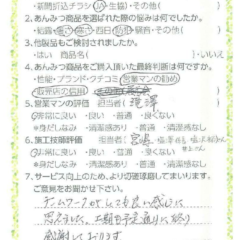 ・新聞折込チラシ ・生協)・その他(
2.あんみつ商品を選ばれた際の悩みは何でしたか。
・結露・暑さ・寒さ・西日・防犯・騒音・その他(
3.他販品もご検討されましたか。
・はい 商品名( )・いいえ
4.あんみつ商品をご購入頂いた最終判断は何ですか。
・性能・ブランド・クチコミ・営業マンの勧め
・取扱店の信用・
5.営業マンの評価 担当者( 滝澤
・非常に良い ・良い ・普通 ・良くない
*身だしなみ ・清潔感あり ・普通 ・清潔感なし
6.施工技師評価 担当者( 宮嶋
・非常に良い ・良い ・普通 ・良くない
*身だしなみ ・清潔感あり ・普通 ・清潔感なし
7.サービス向上のため、より切磋琢磨してまいります。
ご意見をお聞かせ下さい。
チームワークがとても良い感じに
思えました。工期も予定通りに終り
感謝しております